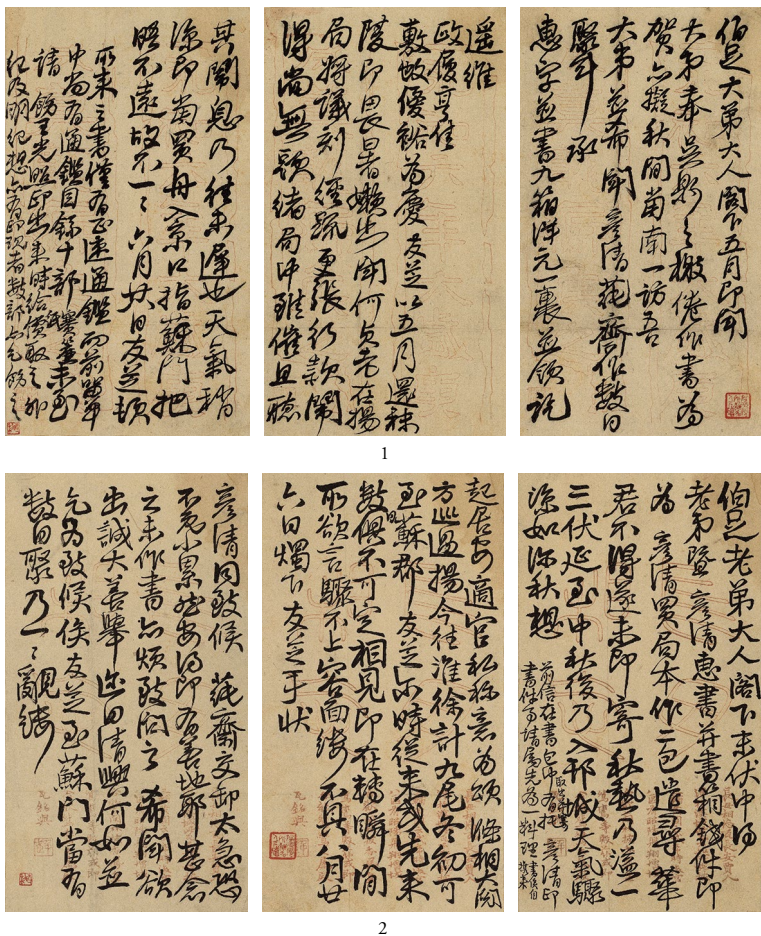 伯足大弟大人閣下五月即聞
大弟奉吳縣之檄倦作書為
賀亦擬秋間當南一訪吾
大弟並希聞彥清蒓齋作數日
聚耳 承
惠字並書九箱洋元一裹並領託
遥維
政優
敷優裕為慶友芝以五月還秣
陵即畏暑懶出聞何貞老在揚
局將議刻經疏更張行款鬧
得尚無頭緒局中雖催且聽
其鬧息乃往未遲也天氣稍
涼即當買舟入京口指蘇門把
晤不遠故不一一六月廿日友芝頓
所來之書僅有通鑑而前
中尚有通鑑目錄十部未至
請飭出來時給價取之
紀及明紀想亦有印現者數部亦乞飭之
1
伯足老弟大人閣下末伏中得
老弟暨彥清惠書并書箱錢件即
為彥清買局本作二包遣尋華
君不得遂未即寄秋熱乃溢一
三伏延至中秋後乃入邗成天氣驟
涼如深秋想
前信在書包中有託彥清印
書件事請屬先為一料理
起居安適官私稱意為頌滌相大閱
方巡過揚今往淮徐計九尾冬初可
至蘇郡友芝亦時從來或先來
數俱不可定相見即在轉瞬間
所欲言驟不上容面縷不具八月廿
六日燭下友芝手狀
彥清同致候蒓齋交卸太急恐
不免小累能安得即有善地耶甚念
之未作書亦煩致問之希聞欲
出誠大善舉邇日清興何如並
乞為致候俟友芝至蘇門當有
數日聚乃一一覼縷
2